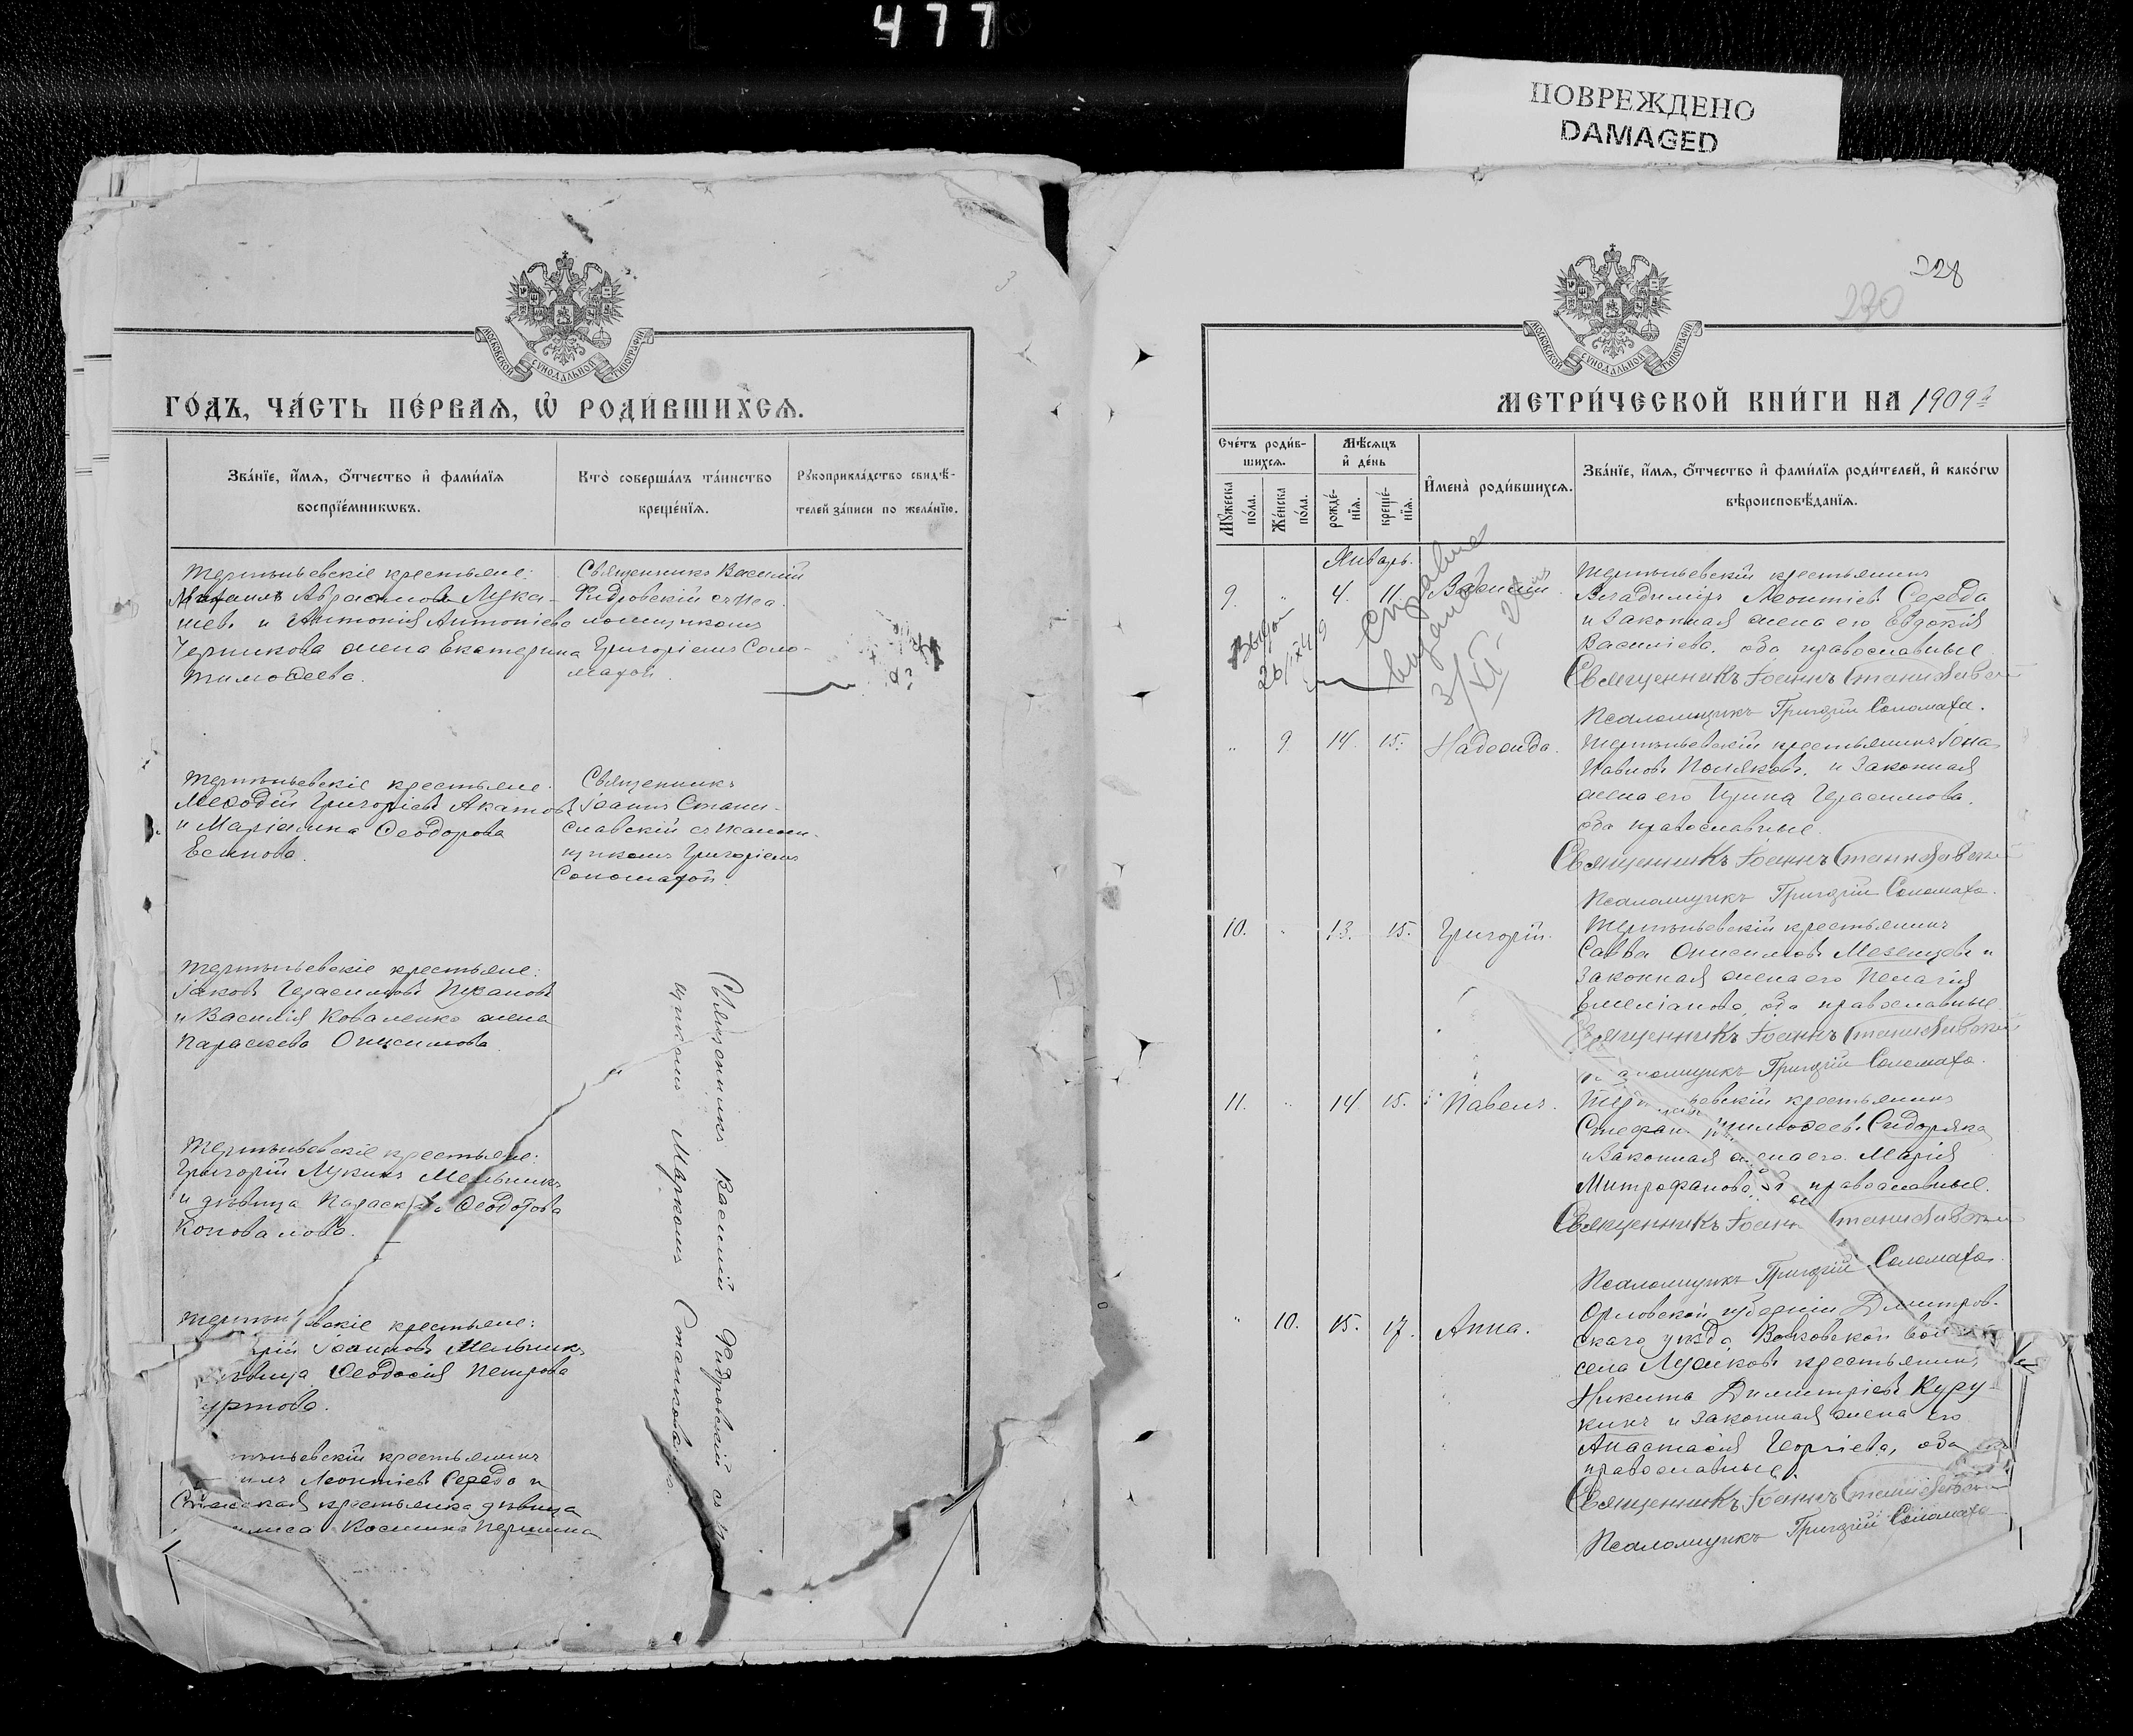 477
ПОВРЕЖДЕНО
DAMAGED
МОСКОВСКОЙ СѴНОДАЛЬНОЙ ТИПОГРАФІИ
ГО́ДЪ, ЧА́СТЬ ПЕ́РВАЯ, Ѡ҆ РОДИ́ВШИХСЯ.
Зва́нїе, и҆́мя, ѻ҆́тчество и҆ фами́лїя
воспрїе́мникѡвъ.
Кто̀ соверша́лъ та́инство
креще́нїя.
Рꙋкоприкла́дство свидѣ́-
телей за́писи по жела́нїю.
Терпѣньевскіе крестьяне:
Аврамовъ Лука-
шевъ и Антонія Антоніева
Черникова жена Екатерина
Тимоѳеева.
Священникъ Василій
Фидровскій съ Пса-
ломщикомъ
Григоріемъ Соло-
махой
Терпѣньевскіе крестьяне.
Меѳодій Григоріевъ Акатовъ
и Маріанна Ѳеодорова
Есипова.
Священникъ
Іоаннъ Стани-
славскій съ Псалом-
щикомъ Григоріемъ
Соломахой.
Терпѣньевскіе крестьяне:
Іаковъ Герасимовъ
и Василія Коваленко жена
Параскева Онисимова
Терпѣньевскіе крестьяне:
Григорій Лукинъ Мельникъ
и дѣвица Параскева Ѳеодотова
Коновалова.
Священникъ Василій Фидровскій съ Пса
щикомъ Маркомъ Станкова
крестьяне:
Іоанновъ Мельникъ
Ѳеодосія Петрова
крестьянинъ
Леонтіевъ Середа и
крестьянка дѣвица
Космина Першина
228
230
МОСКОВСКОЙ СѴНОДАЛЬНОЙ ТИПОГРАФІИ
МЕТРИ́ЧЕСКОЙ КНИ́ГИ НА 1909й
Сче́тъ роди́в-
шихся.
Мꙋ́жеска по́ла.
Же́нска по́ла.
Мѣ́сяцъ и҆ де́нь
рожде́-нїя.
креще́-нїя.
И҆мена̀ роди́вшихся.
Зва́нїе, и҆́мя, ѻ҆́тчество и҆ фами́лїя роди́телей, и҆ како́гѡ
вѣроисповѣ́данїя.
Январь.
9. " 4. 11. Василій
справка
выдана
3/XI-26
Терпѣньевскій крестьянинъ
Владиміръ Леонтіевъ Середа
и законная жена его Евдокія
Василіева, оба православные
Священникъ Іоаннъ Станиславскій
Псаломщикъ Григорій Соломаха.
" 9. 14. 15. Надежда.
Терпѣньевскій крестьянинъ Іона
Павловъ Поляковъ и законная
жена его Ирина Герасимова,
оба православные.
Священникъ Іоаннъ Станиславскій
Псаломщикъ Григорій Соломаха.
10. " 13. 15. Григорій.
Терпѣньевскій крестьянинъ
Савва Онисимовъ Мезенцовъ и
законная жена его Пелагія
Емеліанова, оба православные
Священникъ Іоаннъ Станиславскій
Псаломщикъ Григорій Соломаха.
11. " 14. 15. Павелъ.
Терпѣньевскій крестьянинъ
Стефанъ Тимоѳеевъ Сидоряка
и законная жена его Марія
Митрофанова, оба православные.
Священникъ Іоаннъ Станиславскій
Псаломщикъ Григорій Соломаха.
" 10. 15. 17. Анна.
Орловской губерніи Дмитров-
скаго уѣзда,
села крестьянинъ
Никита Димитріевъ Куру-
кинъ и законная жена его
Анастасія Георгіева, оба
православные.
Священникъ Іоаннъ Станиславскій
Псаломщикъ Григорій Соломаха